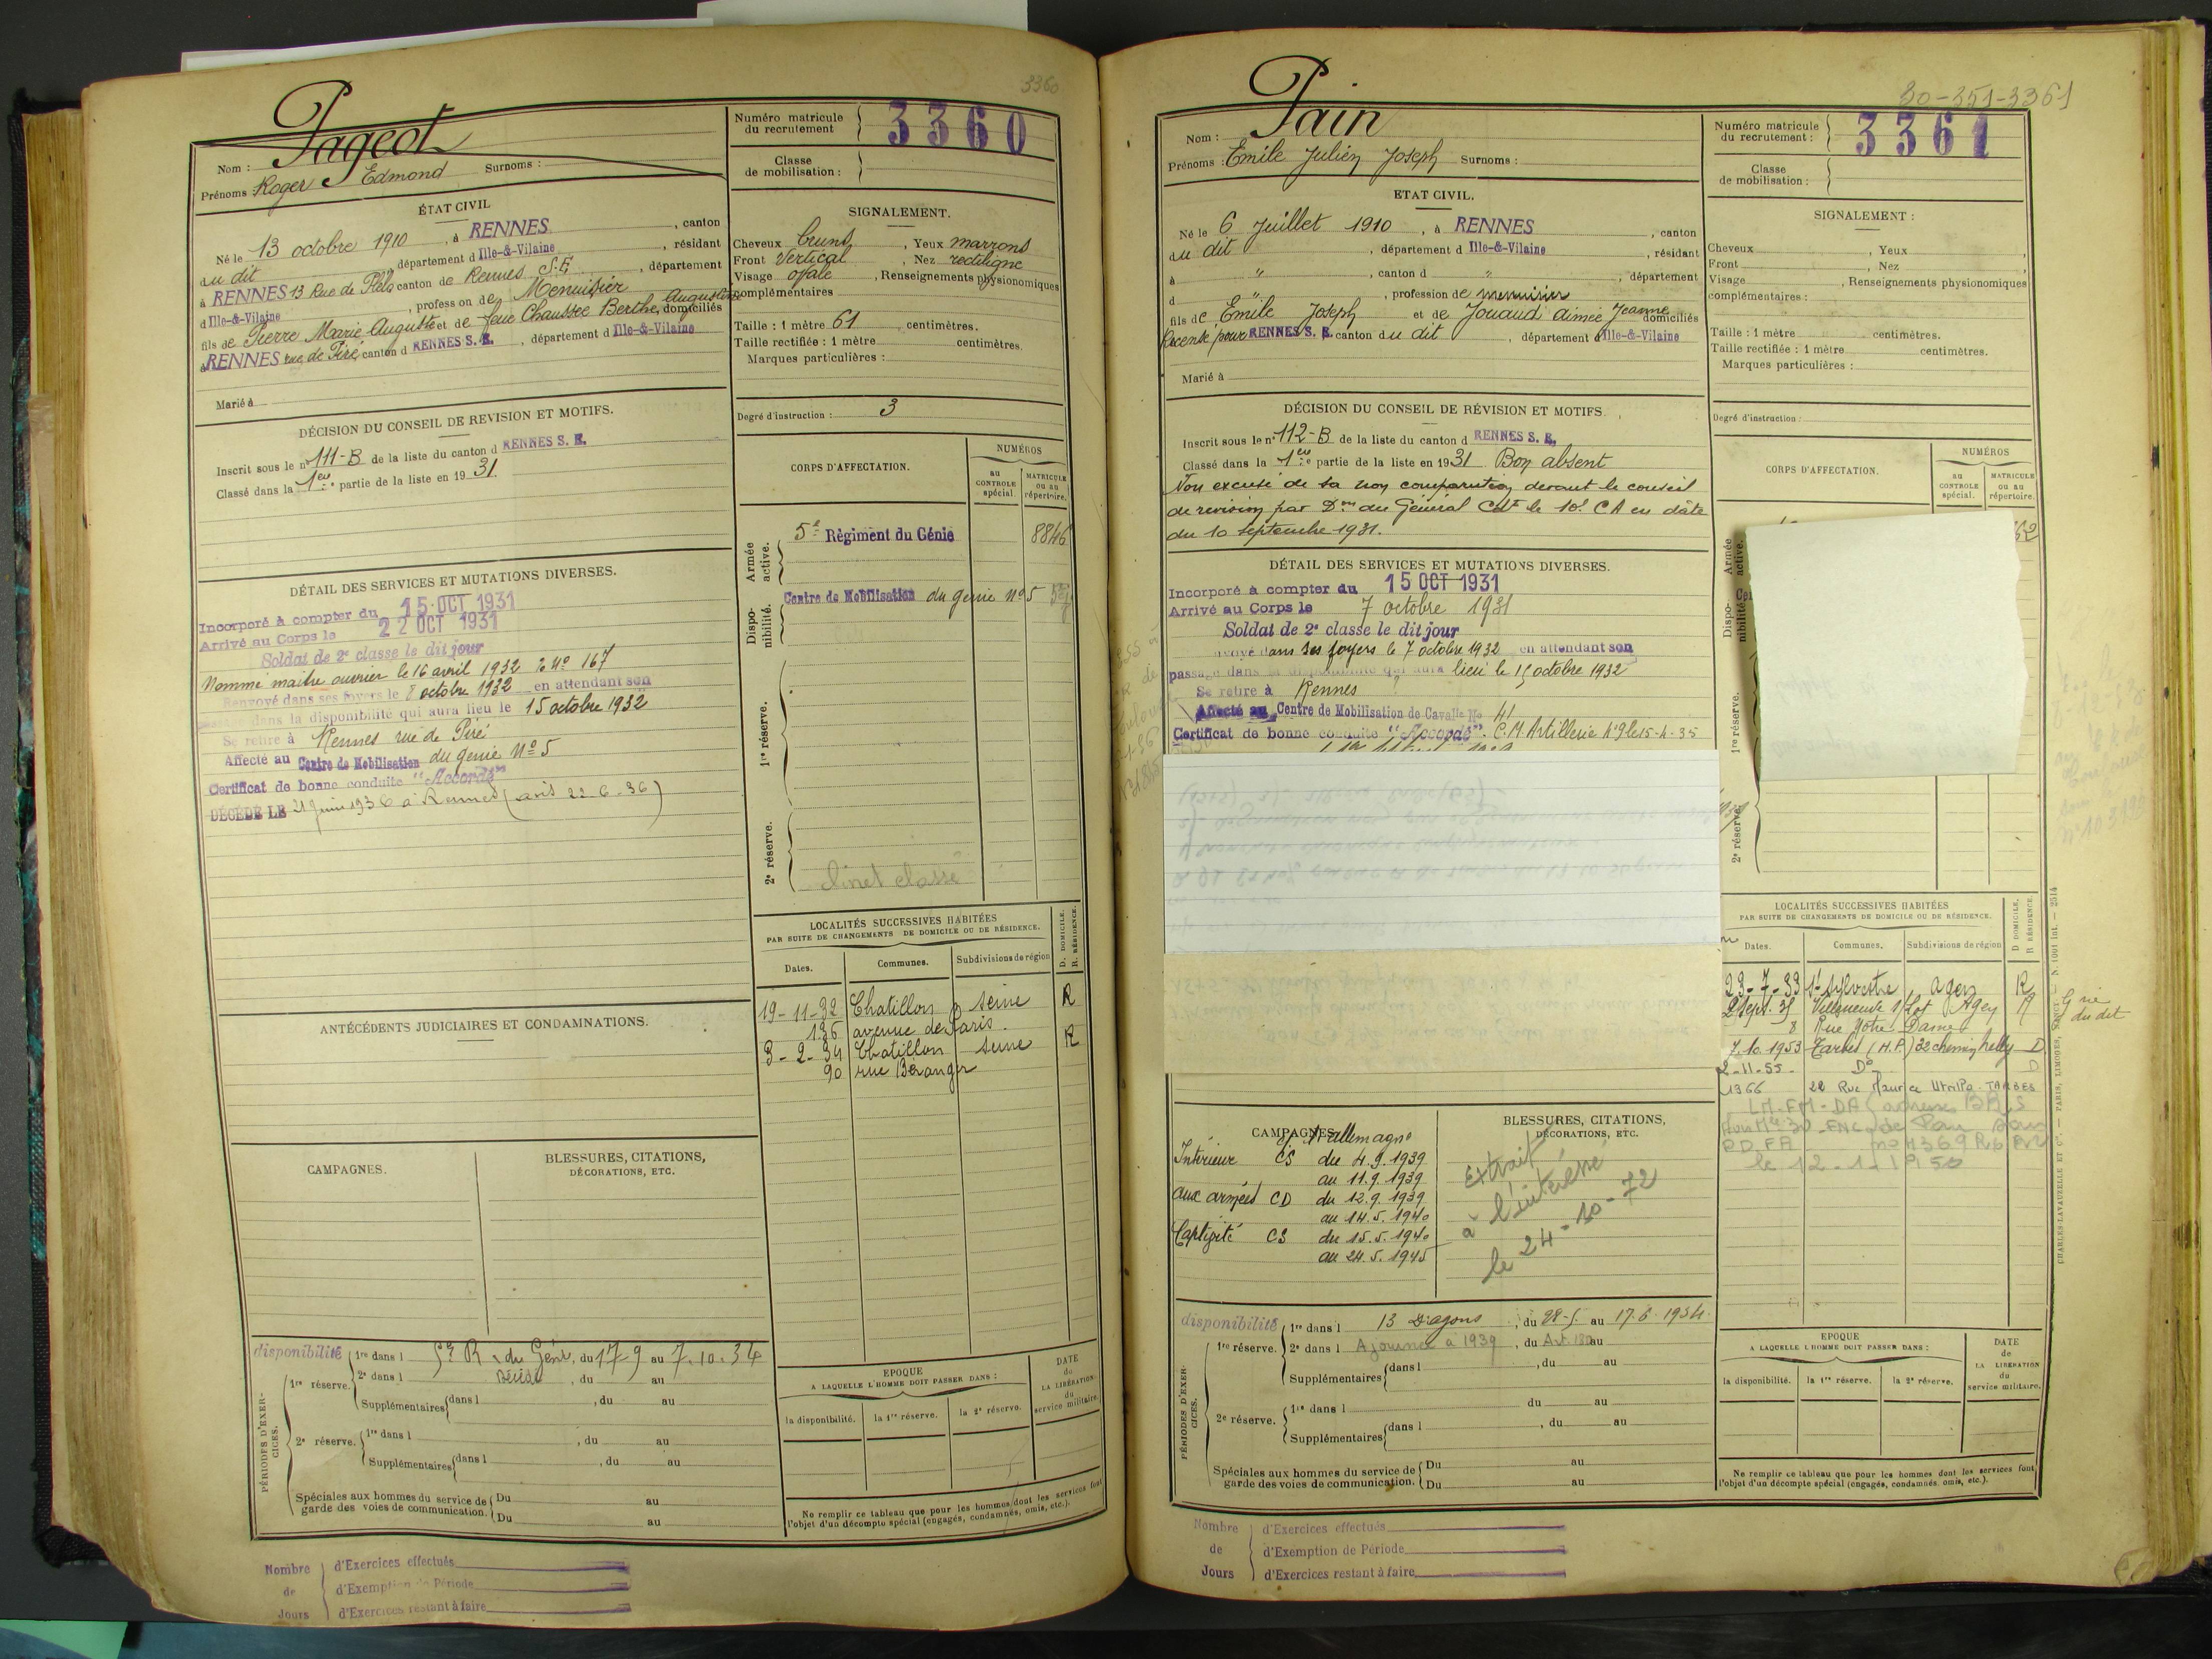 3360
Pageot
Nom :
Prénoms : Roger Edmond Surnoms :
Numéro matricule
du recrutement
3360
Classe
de mobilisation :
ÉTAT CIVIL
Né le 13 octobre 1910, à RENNES, canton
du dit, département d Ille-&-Vilaine, résidant
à RENNES 13 Rue de Plélo canton de Rennes S.E, département
d Ille-&-Vilaine, profession de Menuisier
fils de Pierre Marie Auguste et de feue Chaussée Berthe Augustine, domiciliés
à RENNES rue de Piré canton d RENNES S. E., département d Ille-&-Vilaine
Marié à
SIGNALEMENT.
Cheveux bruns, Yeux marrons
Front Vertical, Nez rectiligne
Visage ovale, Renseignements physionomiques
complémentaires
Taille : 1 mètre 61 centimètres.
Taille rectifiée : 1 mètre centimètres.
Marques particulières :
Degré d'instruction : 3
DÉCISION DU CONSEIL DE REVISION ET MOTIFS.
Inscrit sous le n° 111-B de la liste du canton d RENNES S. E.
Classé dans la 1ère partie de la liste en 1931.
DÉTAIL DES SERVICES ET MUTATIONS DIVERSES.
Incorporé à compter du 15 OCT 1931
Arrivé au Corps le 22 OCT 1931
Soldat de 2e classe le dit jour
Nommé maître ouvrier le 16 avril 1932 167
Renvoyé dans ses foyers le 8 octobre 1932 en attendant son
passage dans la disponibilité qui aura lieu le 15 octobre 1932
Se retire à Rennes rue de Piré
Affecté au Centre de Mobilisation du génie N° 5
Certificat de bonne conduite "Accordé"
DÉCÉDÉ LE 21 juin 1936 à Rennes (avis 22-6-36)
CORPS D'AFFECTATION.
NUMÉROS
au
CONTROLE
spécial.
MATRICULE
ou au
répertoire.
Armée
active.
5e Régiment du Génie 8846
Dispo-
nibilité.
Centre de Mobilisation du génie N° 5
1re réserve.
2e réserve.
classé
LOCALITÉS SUCCESSIVES HABITÉES
PAR SUITE DE CHANGEMENTS DE DOMICILE OU DE RÉSIDENCE.
Dates.
Communes.
Subdivisions de région
D. DOMICILE.
R. RÉSIDENCE.
19-11-32 Chatillon Seine R
136 avenue de Paris.
3-2-34 Chatillon Seine R
90 rue Béranger
ANTÉCÉDENTS JUDICIAIRES ET CONDAMNATIONS.
CAMPAGNES.
BLESSURES, CITATIONS,
DÉCORATIONS, ETC.
PÉRIODES D'EXER-
CICES.
disponibilité 1re dans l 5e R du Génie, du 17-9 au 7-10-34
1re réserve. 2e dans l Décédé, du au
Supplémentaires dans l, du au
2e réserve. 1re dans l, du au
Supplémentaires dans l, du au
Spéciales aux hommes du service de
garde des voies de communication.
Du au
Du au
EPOQUE
A LAQUELLE L'HOMME DOIT PASSER DANS :
la disponibilité.
la 1re réserve.
la 2e réserve.
DATE
de
LA LIBÉRATION
du
service militaire.
Ne remplir ce tableau que pour les hommes dont les services font
l'objet d'un décompte spécial (engagés, condamnés, omis, etc.).
Nombre
de
Jours
d'Exercices effectués
d'Exemption de Période
d'Exercices restant à faire
30-351-3361
Nom : Pain
Prénoms : Emile Julien Joseph Surnoms :
Numéro matricule
du recrutement :
3361
Classe
de mobilisation :
ETAT CIVIL.
Né le 6 Juillet 1910, à RENNES, canton
du dit, département d Ille-&-Vilaine, résidant
à ", canton d ", département
d ", profession de menuisier
fils de Emile Joseph et de Jouaud Aimée Jeanne domiciliés
Recensé pour RENNES S. E. canton du dit, département d Ille-&-Vilaine
Marié à
SIGNALEMENT :
Cheveux, Yeux
Front, Nez
Visage, Renseignements physionomiques
complémentaires :
Taille : 1 mètre centimètres.
Taille rectifiée : 1 mètre centimètres.
Marques particulières :
Degré d'instruction :
DÉCISION DU CONSEIL DE RÉVISION ET MOTIFS.
Inscrit sous le n° 112-B de la liste du canton d RENNES S. E.
Classé dans la 1ère partie de la liste en 1931 Bon absent
Non excusé de sa non comparution devant le conseil
de révision par Don du Général Cdt le 10e CA en date
du 10 septembre 1931.
DÉTAIL DES SERVICES ET MUTATIONS DIVERSES.
Incorporé à compter du 15 OCT 1931
Arrivé au Corps le 7 octobre 1931
Soldat de 2e classe le dit jour
envoyé dans ses foyers le 7 octobre 1932 en attendant son
passage dans la disponibilité qui aura lieu le 15 octobre 1932
Se retire à Rennes
Affecté au Centre de Mobilisation de Cavalle No 41
Certificat de bonne conduite "Accordé". C.M. Artillerie N°9 le 15-4-35
CORPS D'AFFECTATION.
NUMÉROS
au
CONTROLE
spécial.
MATRICULE
ou au
répertoire.
Armée
active.
62
Dispo-
nibilité.
1re réserve.
2e réserve.
LOCALITÉS SUCCESSIVES HABITÉES
PAR SUITE DE CHANGEMENTS DE DOMICILE OU DE RÉSIDENCE.
Dates.
Communes.
Subdivisions de région
D DOMICILE.
R RÉSIDENCE.
23-7-33 St Sylvestre Agen R
2 Sept. 35 Villeneuve s/Lot Agen R
8 Rue Notre Dame
7.10.1953 Tarbes (H.P.) 32 chemin D
2-11-55 - D° D
1366 22 Rue Maurice Utrillo - TARBES
le 12-1-1950
du dit
CAMPAGNES
c/ l'allemagne
Intérieur CS du 4.9.1939
au 11.9.1939
aux armées CD du 12.9.1939
au 14.5.1940
Captivité CS du 15.5.1940
au 24.5.1945
BLESSURES, CITATIONS,
DÉCORATIONS, ETC.
Extrait
à l'intéressé
le 24-10-72
PÉRIODES D'EXER-
CICES.
disponibilité 1re dans l 13 Dragons, du 28-5 au 17.6.1934.
1re réserve. 2e dans l Ajourné à 1939, du Art. au
Supplémentaires dans l, du au
2e réserve. 1re dans l du au
Supplémentaires dans l, du au
Spéciales aux hommes du service de
garde des voies de communication.
Du au
Du au
EPOQUE
A LAQUELLE L'HOMME DOIT PASSER DANS :
la disponibilité.
la 1re réserve.
la 2e réserve.
DATE
de
LA LIBÉRATION
du
service militaire.
Ne remplir ce tableau que pour les hommes dont les services font
l'objet d'un décompte spécial (engagés, condamnés, omis, etc.).
CHARLES-LAVAUZELLE ET Cie. — PARIS, LIMOGES, NANCY. — N. 1001 int. — 2514
Nombre
de
Jours
d'Exercices effectués
d'Exemption de Période
d'Exercices restant à faire